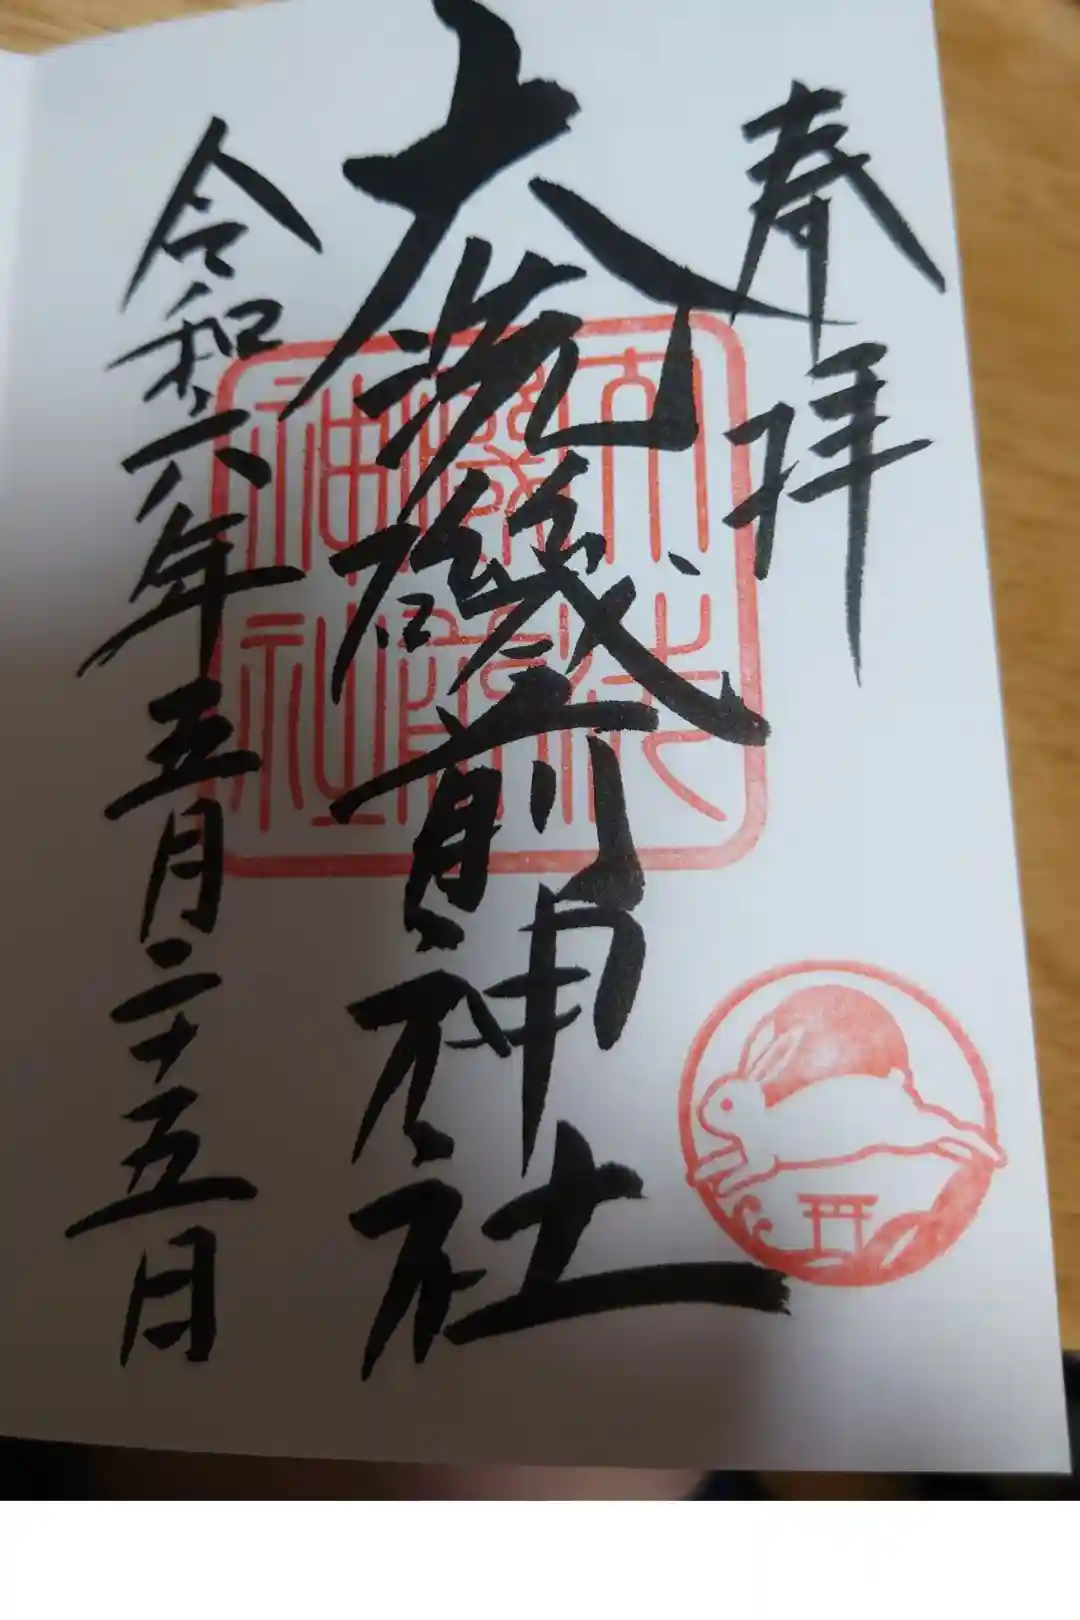 奉拝
大洗磯前神社
大洗
磯前
神社
令和六年五月二十五日